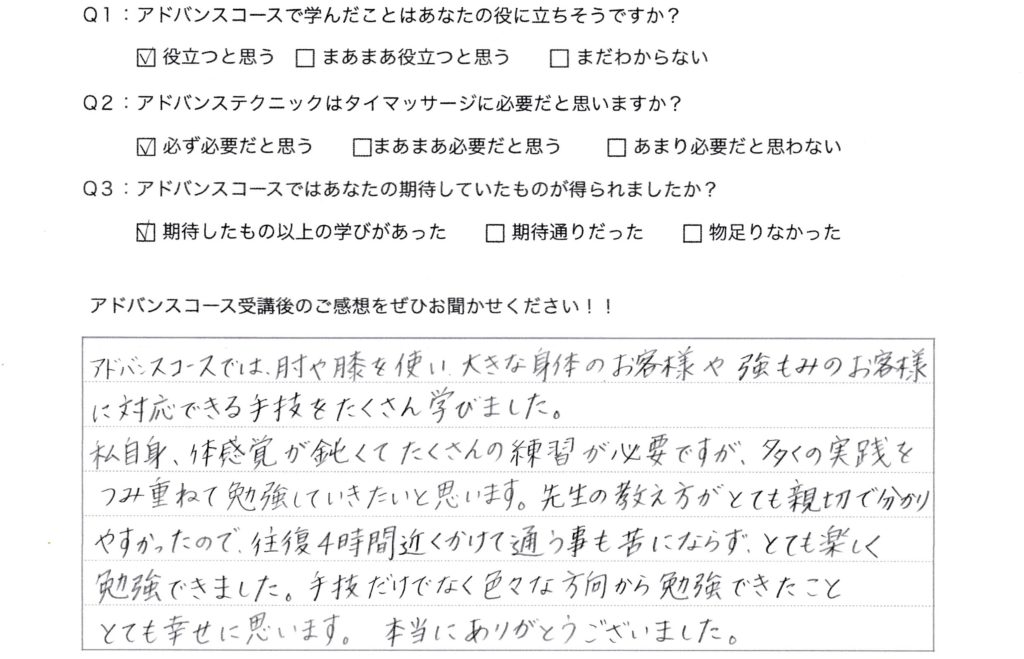 Q1：アドバンスコースで学んだことはあなたの役に立ちそうですか？
☑ 役立つと思う □ まあまあ役立つと思う □ まだわからない
Q2：アドバンステクニックはタイマッサージに必要だと思いますか？
☑ 必ず必要だと思う □まあまあ必要だと思う □ あまり必要だと思わない
Q3：アドバンスコースではあなたの期待していたものが得られましたか？
☑ 期待したもの以上の学びがあった □ 期待通りだった □ 物足りなかった
アドバンスコース受講後のご感想をぜひお聞かせください！！
アドバンスコースでは、肘や膝を使い、大きな身体のお客様や強もみのお客様
に対応できる手技をたくさん学びました。
私自身、体感覚が鈍くてたくさんの練習が必要ですが、多くの実践を
つみ重ねて勉強していきたいと思います。先生の教え方がとても親切で分かり
やすかったので、往復4時間近くかけて通う事も苦にならず、とても楽しく
勉強できました。手技だけでなく色々な方向から勉強できたこと
とても幸せに思います。 本当にありがとうございました。